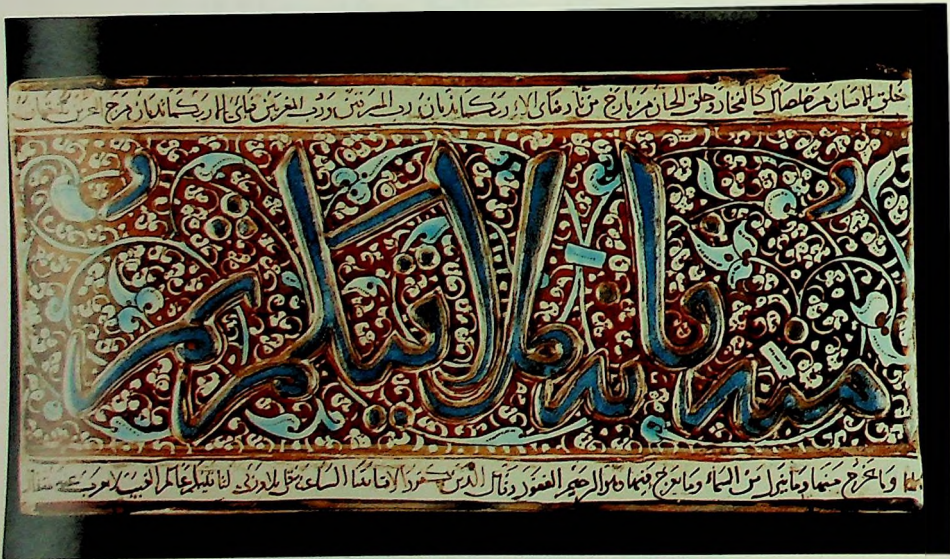 خلق الانسان من صلصال كالفخار وخلق الجان من مارج من نار فباى الاء ربكما تكذبان رب المشرقين ورب المغربين فباى الاء ربكما تكذبان مرج البحرين يلتقيان
منه فانه ملاقيكم ثم
وما يخرج منها وما ينزل من السماء وما يعرج فيها وهو الرحيم الغفور وقال الذين كفروا لا تاتينا الساعة قل بلى وربى لتاتينكم عالم الغيب لا يعزب عنه مثقال